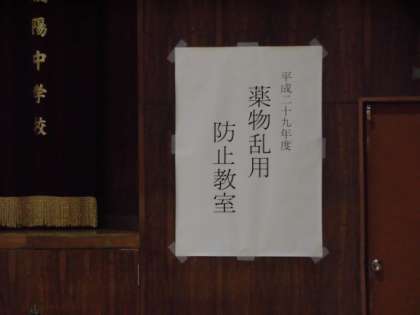 平成二十九年度
薬物乱用
防止教室
陽中学校